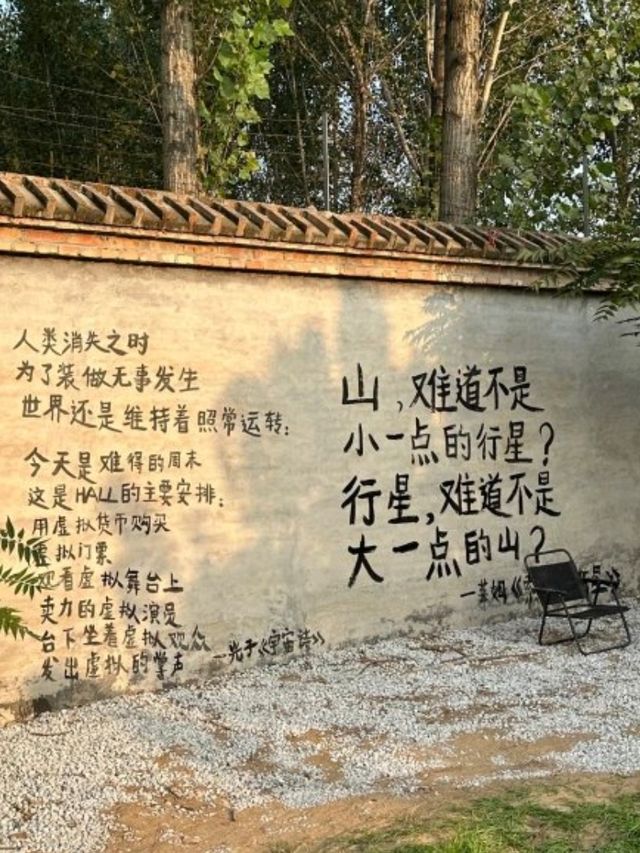 人类消失之时
为了装做无事发生
世界还是维持着照常运转：
今天是难得的周末
这是HALL的主要安排：
用虚拟货币购买
虚拟门票
观看虚拟舞台上
卖力的虚拟演员
台下坐着虚拟观众
发出虚拟的掌声
—光子《宇宙诗》
山，难道不是
小一点的行星？
行星，难道不是
大一点的山？
—莱姆《